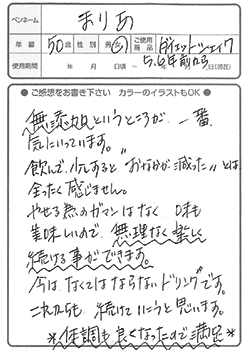 ペンネーム まりあ
年齢 50歳 性別 男・女 ご使用商品 ダイエットシェイク
使用期間 年 月 日頃 ~ 年 月 日(現在) 5,6年前から
● ご感想をお書き下さい カラーのイラストもOK ●
無添加というところが、一番
気にいっています。
飲んで、いると"おなかが減った"とは
全たく感じません。
やせる為のガマンはなく 味も
美味しいので、無理なく楽しく
続ける事ができます。
今は、なくてはならないドリンクです。
これからも、続けていこうと思います。
*体調も良くなったので満足*